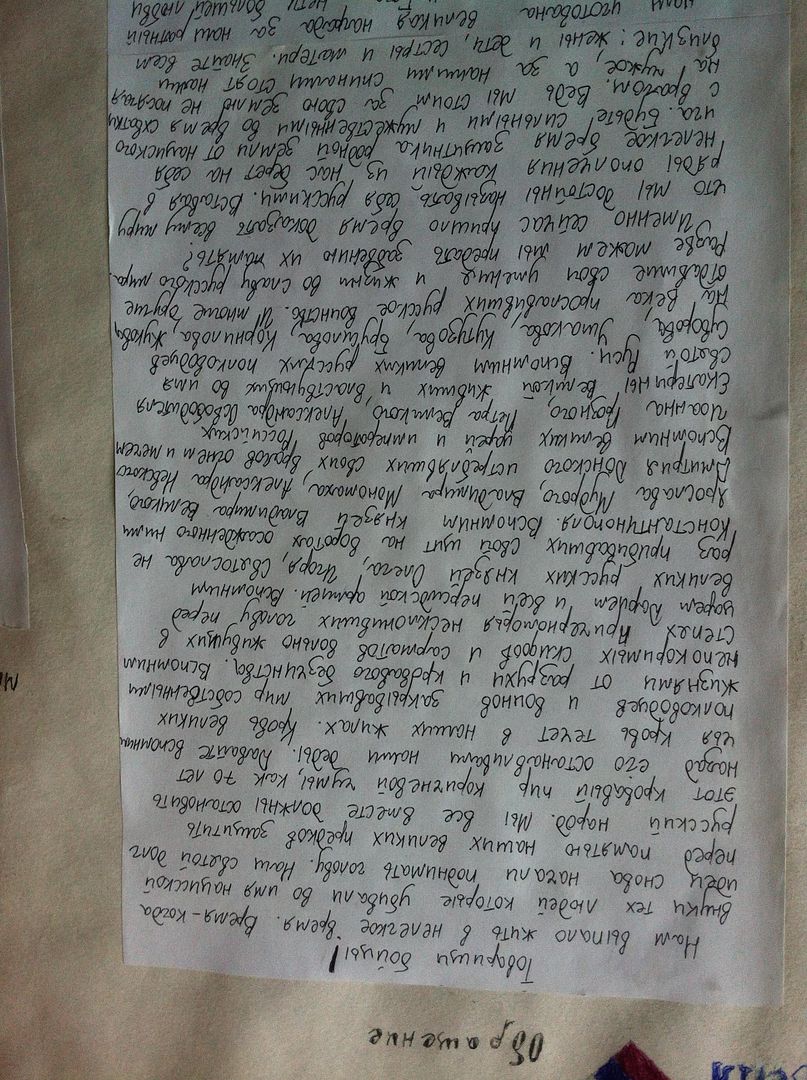 Обращение
Товарищи бойцы!
Нам выпало жить в нелегкое время. Время-когда
внуки тех людей которые убивали во имя нацисской
идеи снова начали поднимать голову. Наш святой долг
перед памятью наших великих предков защитить
русский народ. Мы все вместе должны остановить
этот кровавый пир коричневой чумы, как 70 лет
назад его останавливали наши деды. Давайте вспомним
чья кровь течет в наших жилах. Кровь великих
полководцев и воинов закрывавших мир собственными
жизнями от разрухи и кровавого бесчинства. Вспомним
непокоримых скифов и сарматов вольно живущих в
степях Причерноморья несклонивших голову перед
царем Дарием и всей персидской армией. Вспомним
великих русских князей Олега, Игоря, Святослава не
раз прибивавших свой щит на воротах осажденного ними
Константинополя. Вспомним князей Владимира Великого,
Ярослава Мудрого, Владимира Мономаха, Александра Невского
Дмитрия Донского истреблявших своих врагов огнем и мечем
Вспомним великих царей и императоров Российских
Иоанна Грозного, Петра Великого, Александра Освободителя
Екатерины Великой живших и властвующих во имя
Святой Руси. Вспомним великих русских полководцев
Суворова, Ушакова, Кутузова, Брусилова, Корнилова, Жукова
На века прославивших русское воинство. И многие другие
отдавшие свои умения и жизни во славу русского мира.
Разве можем мы предать забвению их память?
Именно сейчас пришло время доказать всему миру
что мы достойны называть себя русскими. Вставая в
ряды ополчения каждый из нас берет на себя
нелегкое бремя защитника родной земли от нациского
ига. Будьте сильными и мужественными во время схватки
с врагом. Ведь мы стоим за свою землю не посягая
на чужое, а за нашими спинами стоят наши
близкие: жены и дети, сестры и матери. Знайте всем
нам уготована великая награда за наш ратный
нету большей любви